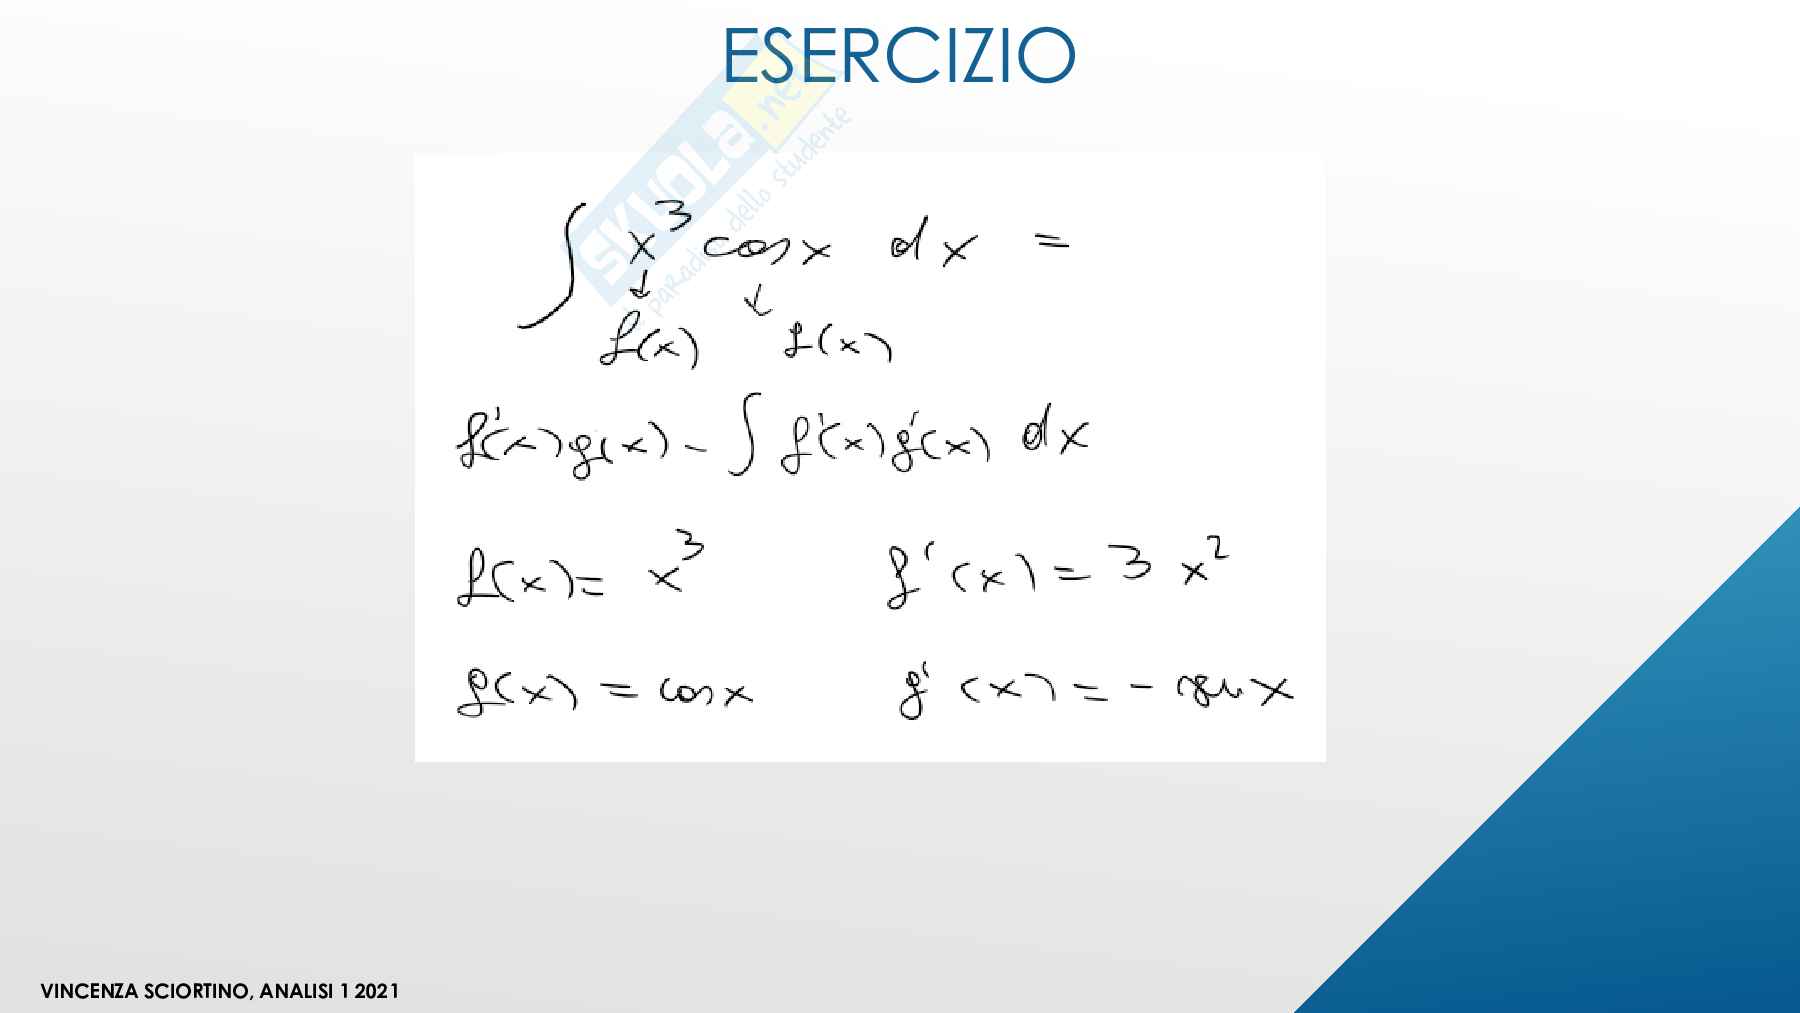 ESERCIZIO
SKUOLA.net
paradiso dello studente
∫ x³ cos x dx =
↓ ↓
f(x) g(x)
f'(x)g(x) - ∫ f'(x)g'(x) dx
f(x) = x³ f'(x) = 3x²
g(x) = cos x g'(x) = - sen x
VINCENZA SCIORTINO, ANALISI 1 2021